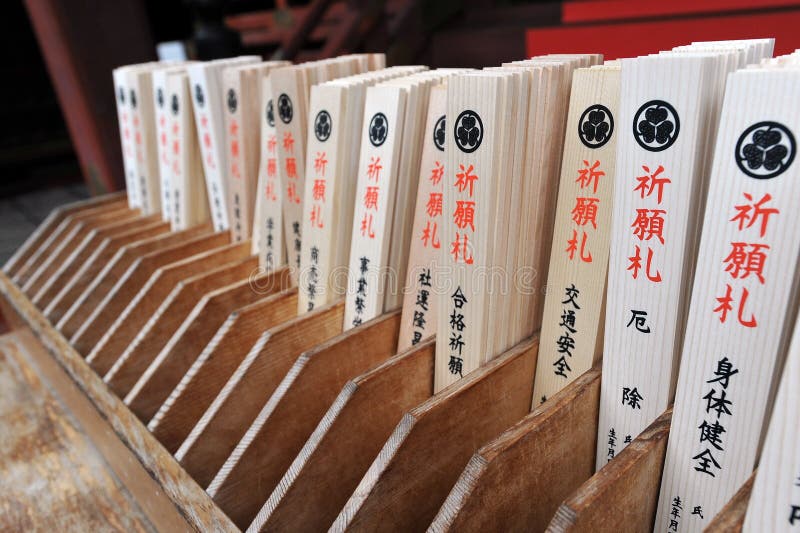 祈願札
祈願札
祈願札
祈願札
祈願札
祈願札
祈願札
商売繁
祈願札
事業繁
祈願札
社運隆昌
祈願札
合格祈願
祈願札
交通安全
祈願札
厄除
氏
生年月
祈願札
身体健全
氏
生年月
dreamstime